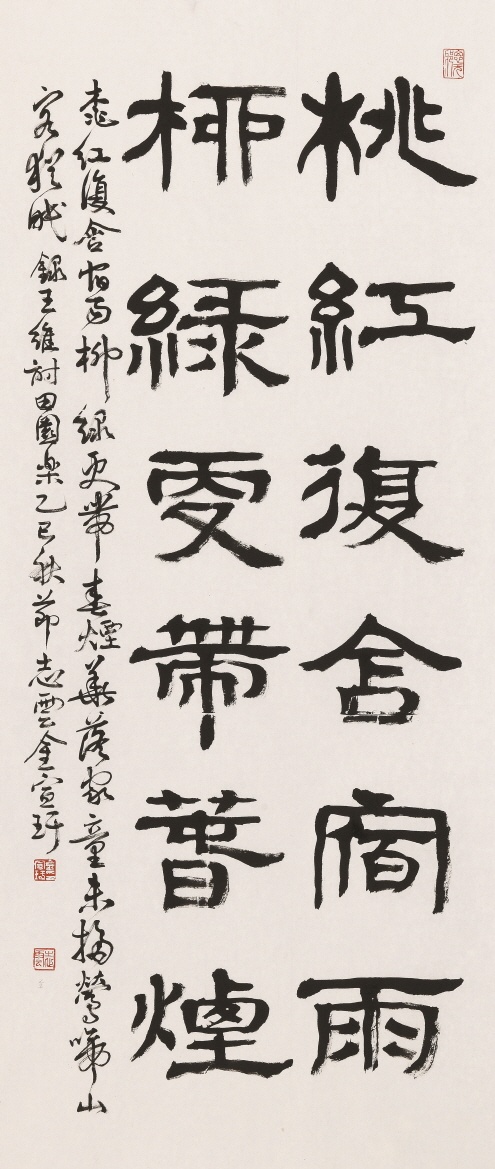 桃紅復含宿雨
柳綠更帶春煙
桃紅復含宿雨柳綠更帶春煙花落家童未掃鶯啼山
客猶眠 錄王維詩田園樂乙巳秋節志雲金宣玗